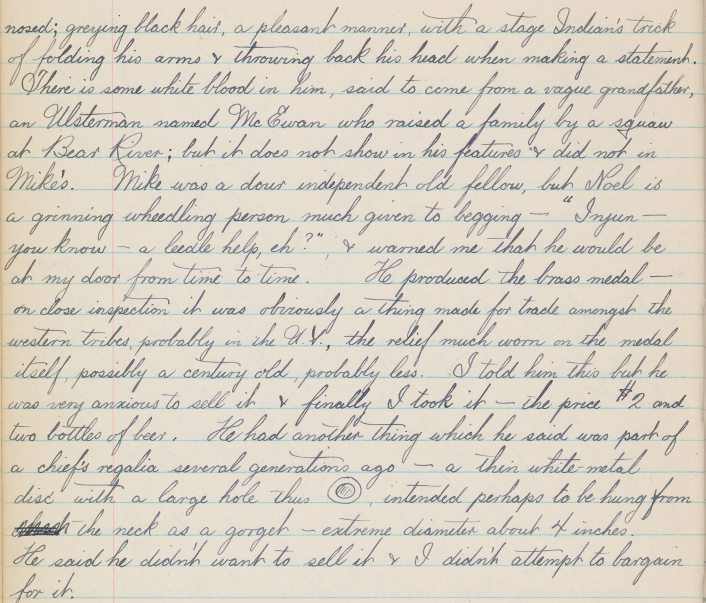 nosed; greying black hair, a pleasant manner, with a stage Indian's trick
of folding his arms & throwing back his head when making a statement.
There is some white blood in him, said to come from a vague grandfather,
an Ulsterman named McEwan who raised a family by a squaw
at Bear River; but it does not show in his features & did not in
Mike's. Mike was a dour independent old fellow, but Noel is
a grinning wheedling person much given to begging — "Injun —
you know — a leedle help, eh?", & warned me that he would be
at my door from time to time. He produced the brass medal —
on close inspection it was obviously a thing made for trade amongst the
western tribes, probably in the U.S., the relief much worn on the medal
itself, possibly a century old, probably less. I told him this but he
was very anxious to sell it & finally I took it — the price $2 and
two bottles of beer. He had another thing which he said was part of
a chief's regalia several generations ago — a thin white-metal
disc with a large hole thus , intended perhaps to be hung from
the neck as a gorget — extreme diameter about 4 inches.
He said he didn't want to sell it & I didn't attempt to bargain
for it.